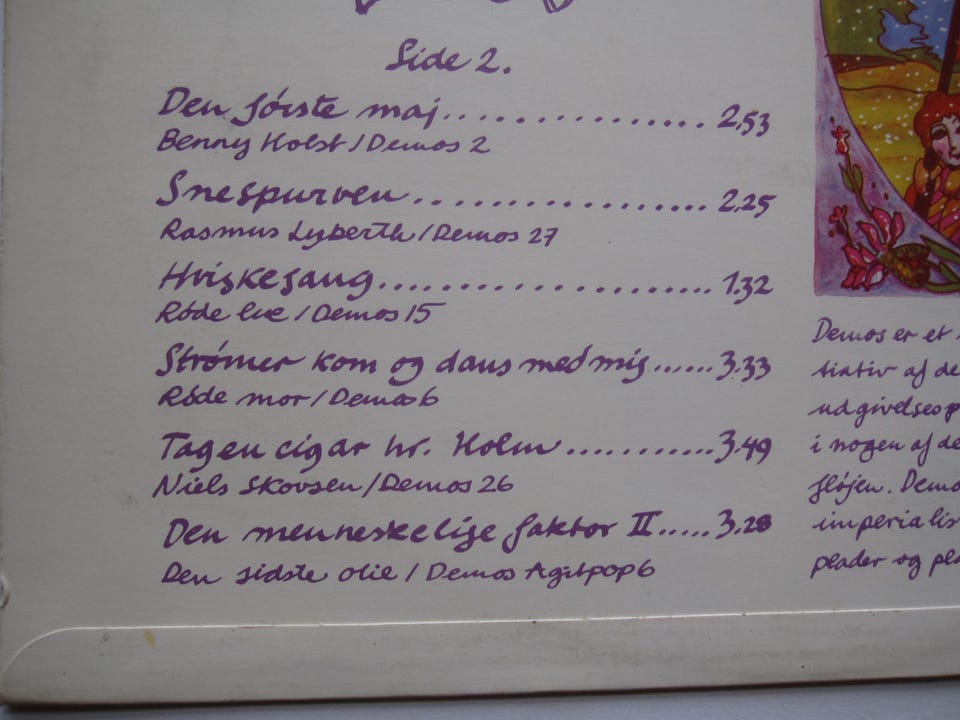 Side 2.
Den første maj................ 2,53
Benny Holst / Demos 2
Snespurven.................. 2,25
Rasmus Lyberth / Demos 27
Hviskesang.................... 1.32
Røde Lue / Demos 15
Strømer kom og dans med mig...... 3.33
Røde mor / Demos 6
Tag en cigar hr. Holm........... 3.49
Niels Skovsen / Demos 26
Den menneskelige faktor II..... 3.28
Den sidste olie / Demos Agitpop 6
Demos er et
tiativ af de
udgivelsesp
i nogen af de
fløjen. Demo
imperialis
plader og pl